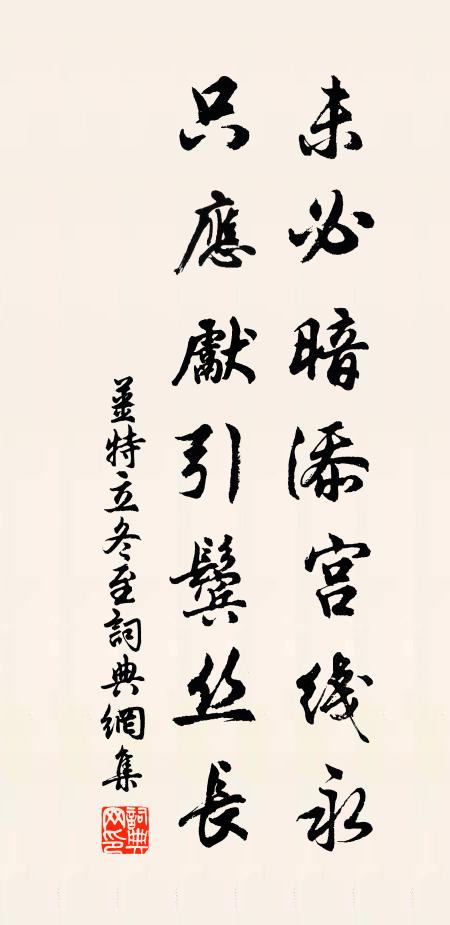 未必暗添宫线永
只應獻引鬓丝長
姜特立冬至詞典網集
詞典網印